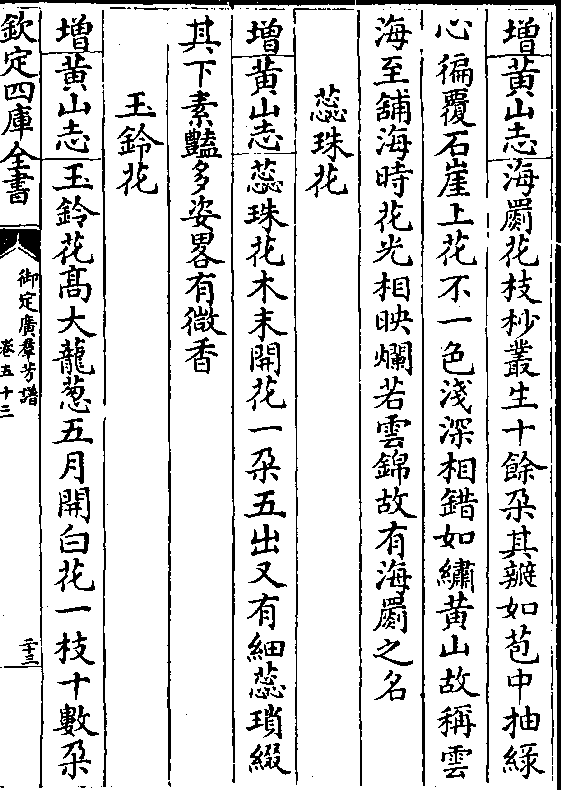 增黄山志海罽花枝杪叢生十餘朶其瓣如苞中抽緑
心徧覆石崖上花不一色淺深相錯如繡黄山故稱雲
海至舖海時花光相映爛若雲錦故有海罽之名
蕊珠花
增黄山志蕊珠花木末開花一朶五出又有細蕊瑣綴
其下素豔多姿畧有微香
玉鈴花
增黄山志玉鈴花高大龍葱五月開白花一枝十數朶
欽定四庫全書
御定廣羣芳譜
卷五十三
二十三